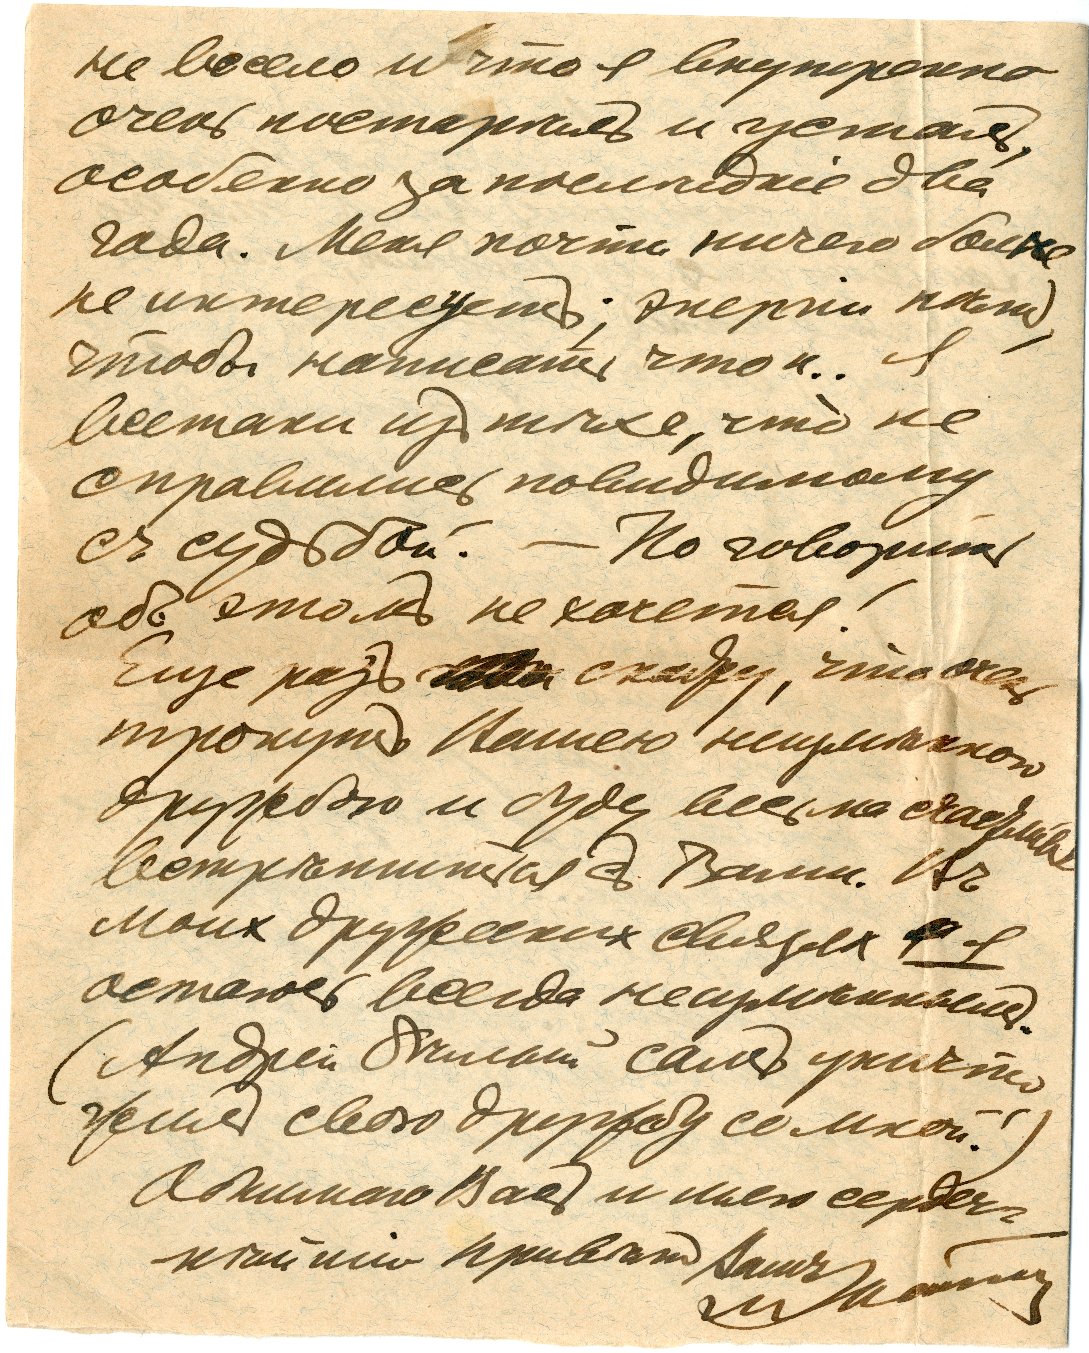 не весело и что я внутренно
очень постарѣлъ и усталъ,
особенно за послѣдніе два
года. Меня почти ничего больше
не интересуетъ; энергіи нѣтъ,
чтобы написать что н.. Я
всетаки изъ тѣхъ, что не
справились повидимому
съ судьбой. — Но говорить
объ этомъ не хочется!
Еще разъ скажу, что очень
тронутъ Вашею неизмѣнною
дружбою и буду весьма счастливъ
встрѣтиться съ Вами. Въ
моих дружеских связях я
остаюсь всегда неизмѣннымъ.
(Андрей Бѣлый самъ уничто
жилъ свою дружбу со мной!)
Обнимаю Васъ и шлю сердеч-
нѣйшій привѣтъ Вашъ